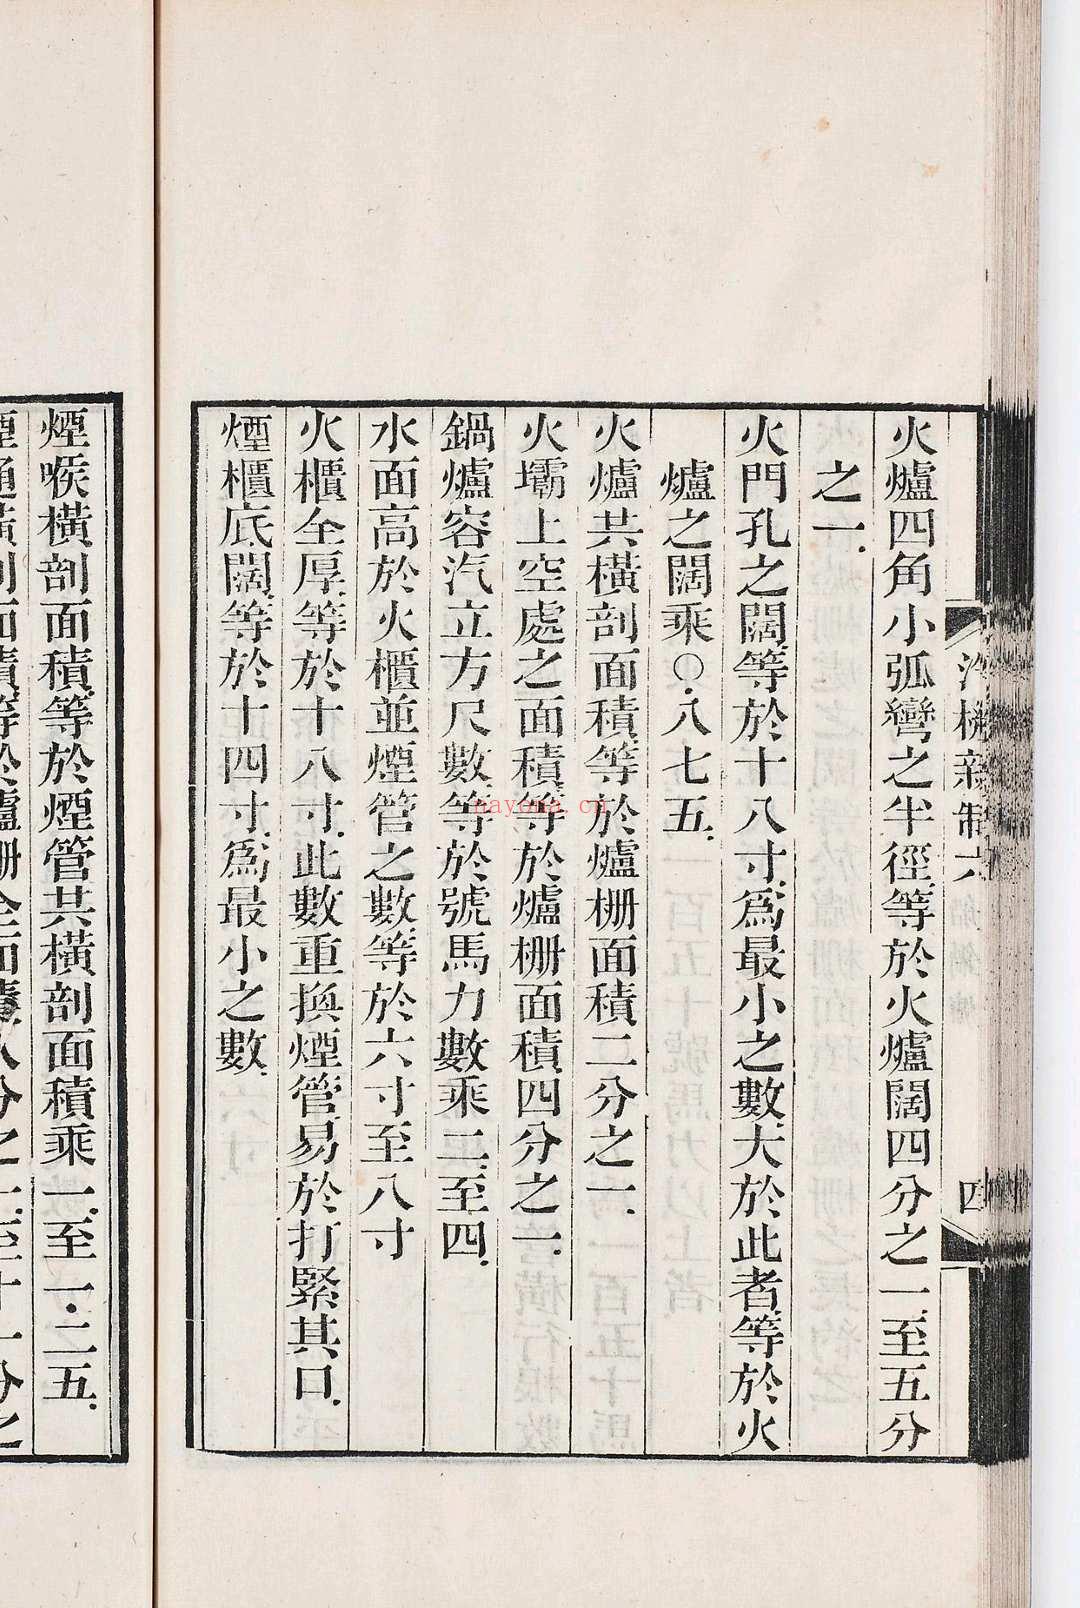 汽機新制六
四
火爐四角小弧彎之半徑等於火爐闊四分之一至五分
之一.
火門孔之闊等於十八寸爲最小之數大於此者等於火
爐之闊乘○.八七五.
火爐共橫剖面積等於爐柵面積二分之一.
火壩上空處之面積等於爐柵面積四分之一.
鍋爐容汽立方尺數等於號馬力數乘二至四.
水面高於火櫃並煙管之數等於六寸至八寸
火櫃全厚等於十八寸.此數重換煙管易於打緊其口.
煙櫃底闊等於十四寸爲最小之數.
煙喉橫剖面積等於煙管共橫剖面積乘一.至一.二五.
煙通橫剖面積等於爐柵全面積八分之一至十一分之
nayona.cn